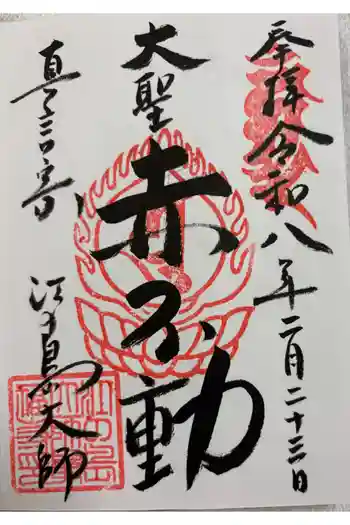 奉拝 令和八年二月二十三日
大聖
赤不動
真言寺
江の島大師